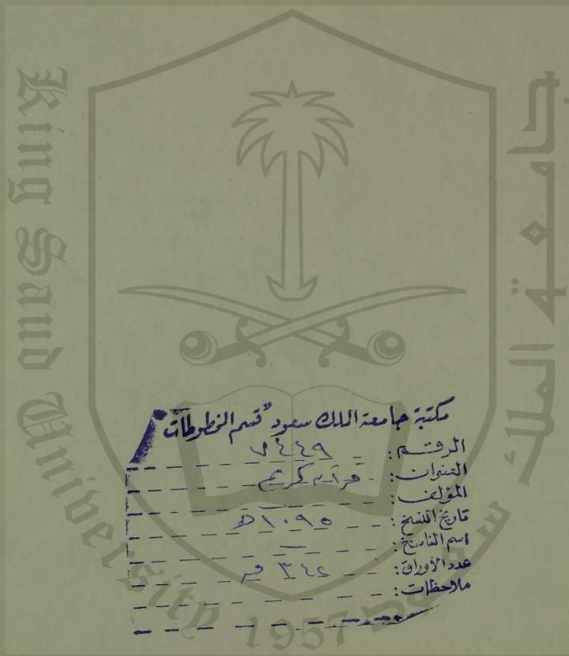 King Saud University
جامعة الملك سعود
1957
مكتبة جامعة الملك سعود "قسم المخطوطات"
الرقـــم: - ٧٤٤٩
العنوان: - قرآن كريم
المؤلف: -
تاريخ النسخ: - ١٠٩٥ هـ
اسم الناسخ: -
عدد الأوراق: - ٣٤٢
ملاحظات: -